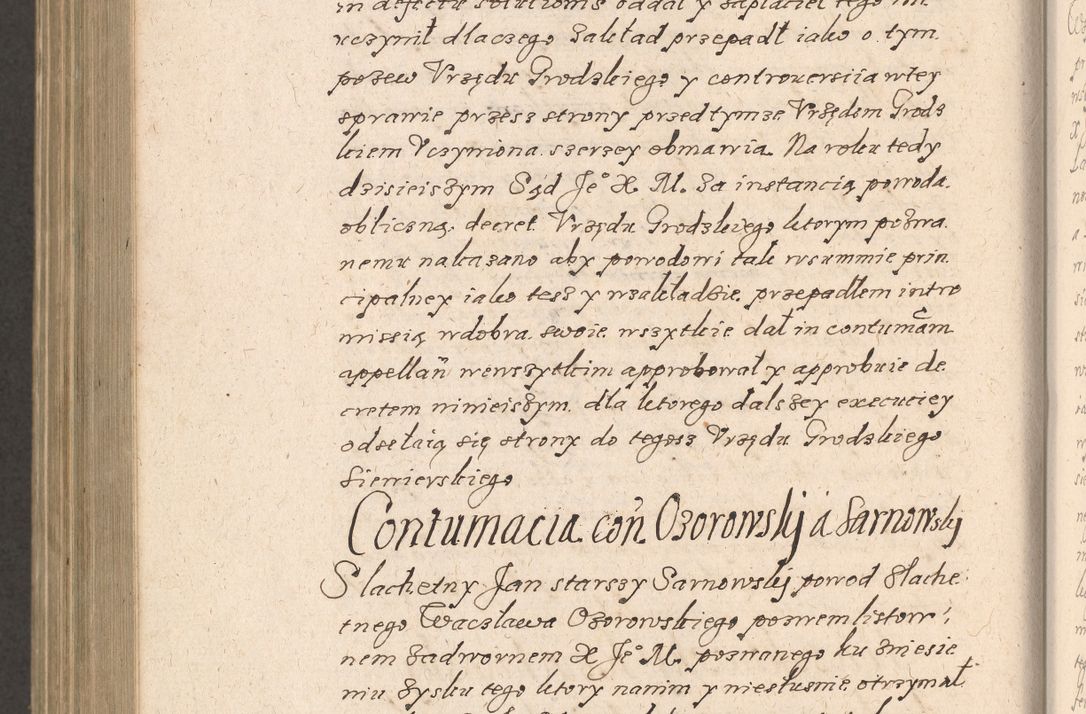 in defectu solutionis oddał y zapłacieł tego nie
uczynił dlaczego Zakład przepadł iako o tym
pozew Vrzędu Grodzkiego y controuersiia wtey
sprawie przesz strony przed tymze Vrzędem Grodz
kiem Vczyniona. szerzey obmawia. Na roku tedy
dzisieiszym Sąd Jeº X. M. Za instancią powoda.
obliczną. decret Vrzędu Grodzkiego ktorym pozwa.
nemu nakazano aby powodowi tak wsummie prin
cipalney iako tesz y wzakładzie. przepadłem intro
missią wdobra. swoie. wszytkie dał in contumam
appellañ wewszytkim approbował y approbuie de
cretem ninieiszym. dla ktorego dalszey execuciey
odselaią się strony do tegosz Vrzędu Grodzkiego
Siewierskiego
Contumacia. coñ Ozorowskij á Sarnowskij
Slachetny Jan starszy Sarnowskij powod Slache
tnego Wacslawa Ozorowskiego pozwem listow
nem Zadwornem X Jeº M. pozwanego ku zniesie
niu zysku tego ktory nanim y niesłusnie. otrzymał